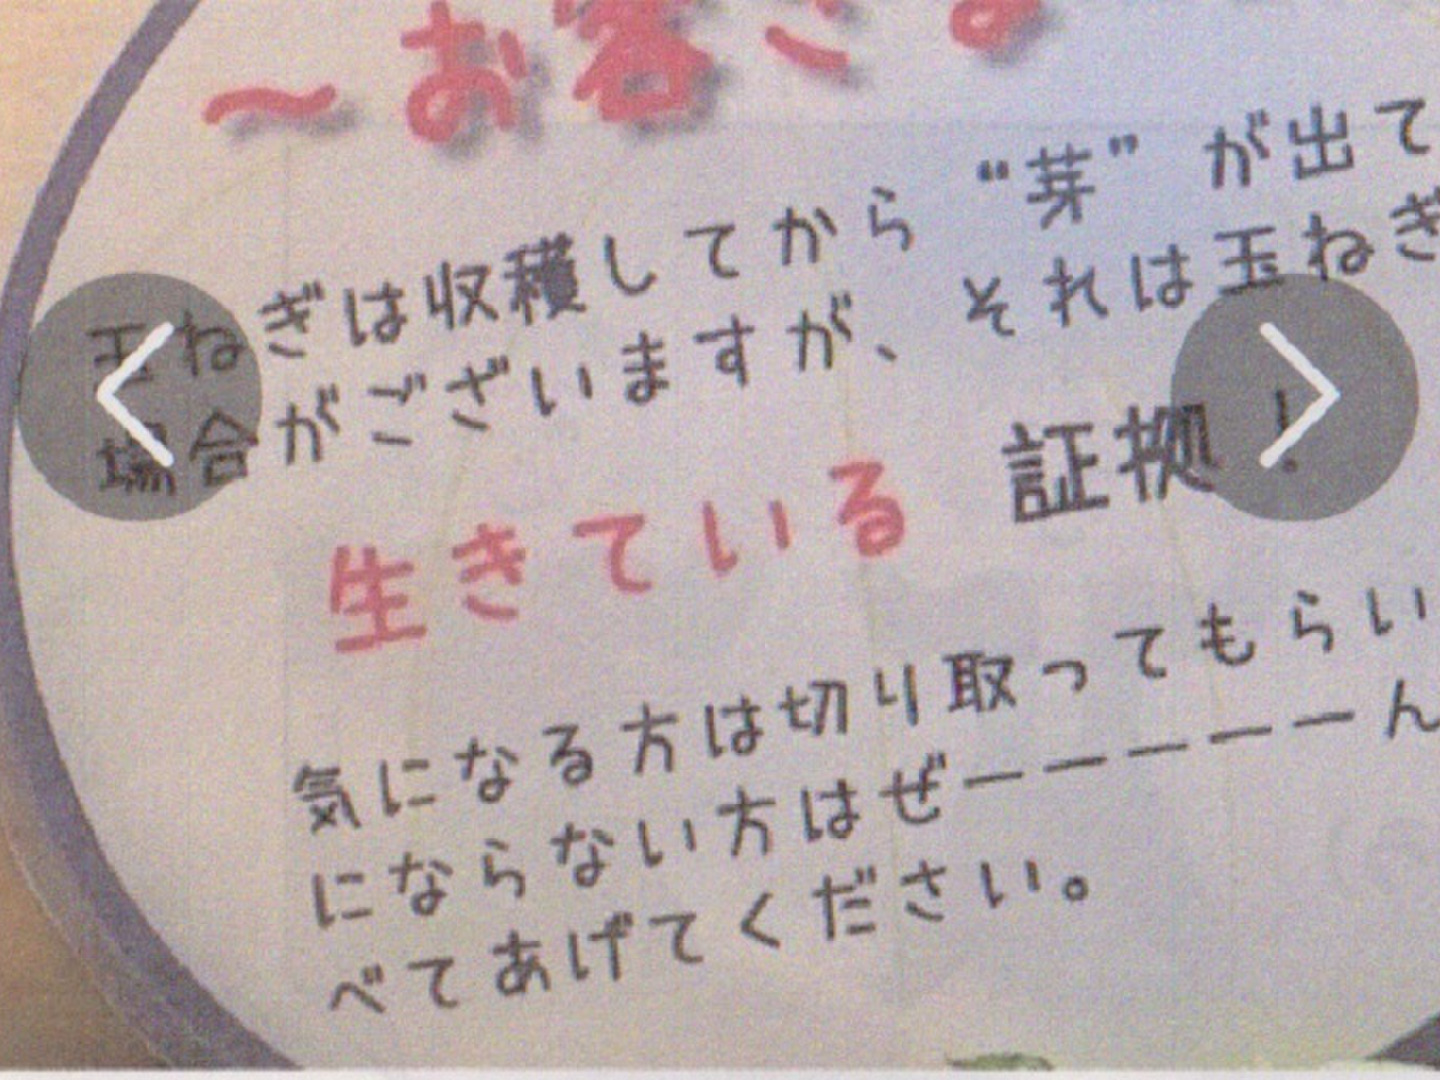 ～お客さま
玉ねぎは収穫してから“芽”が出て
場合がございますが、それは玉ねぎ
生きている 証拠！
気になる方は切り取ってもらい
にならない方はぜーーーーーん
べてあげてください。